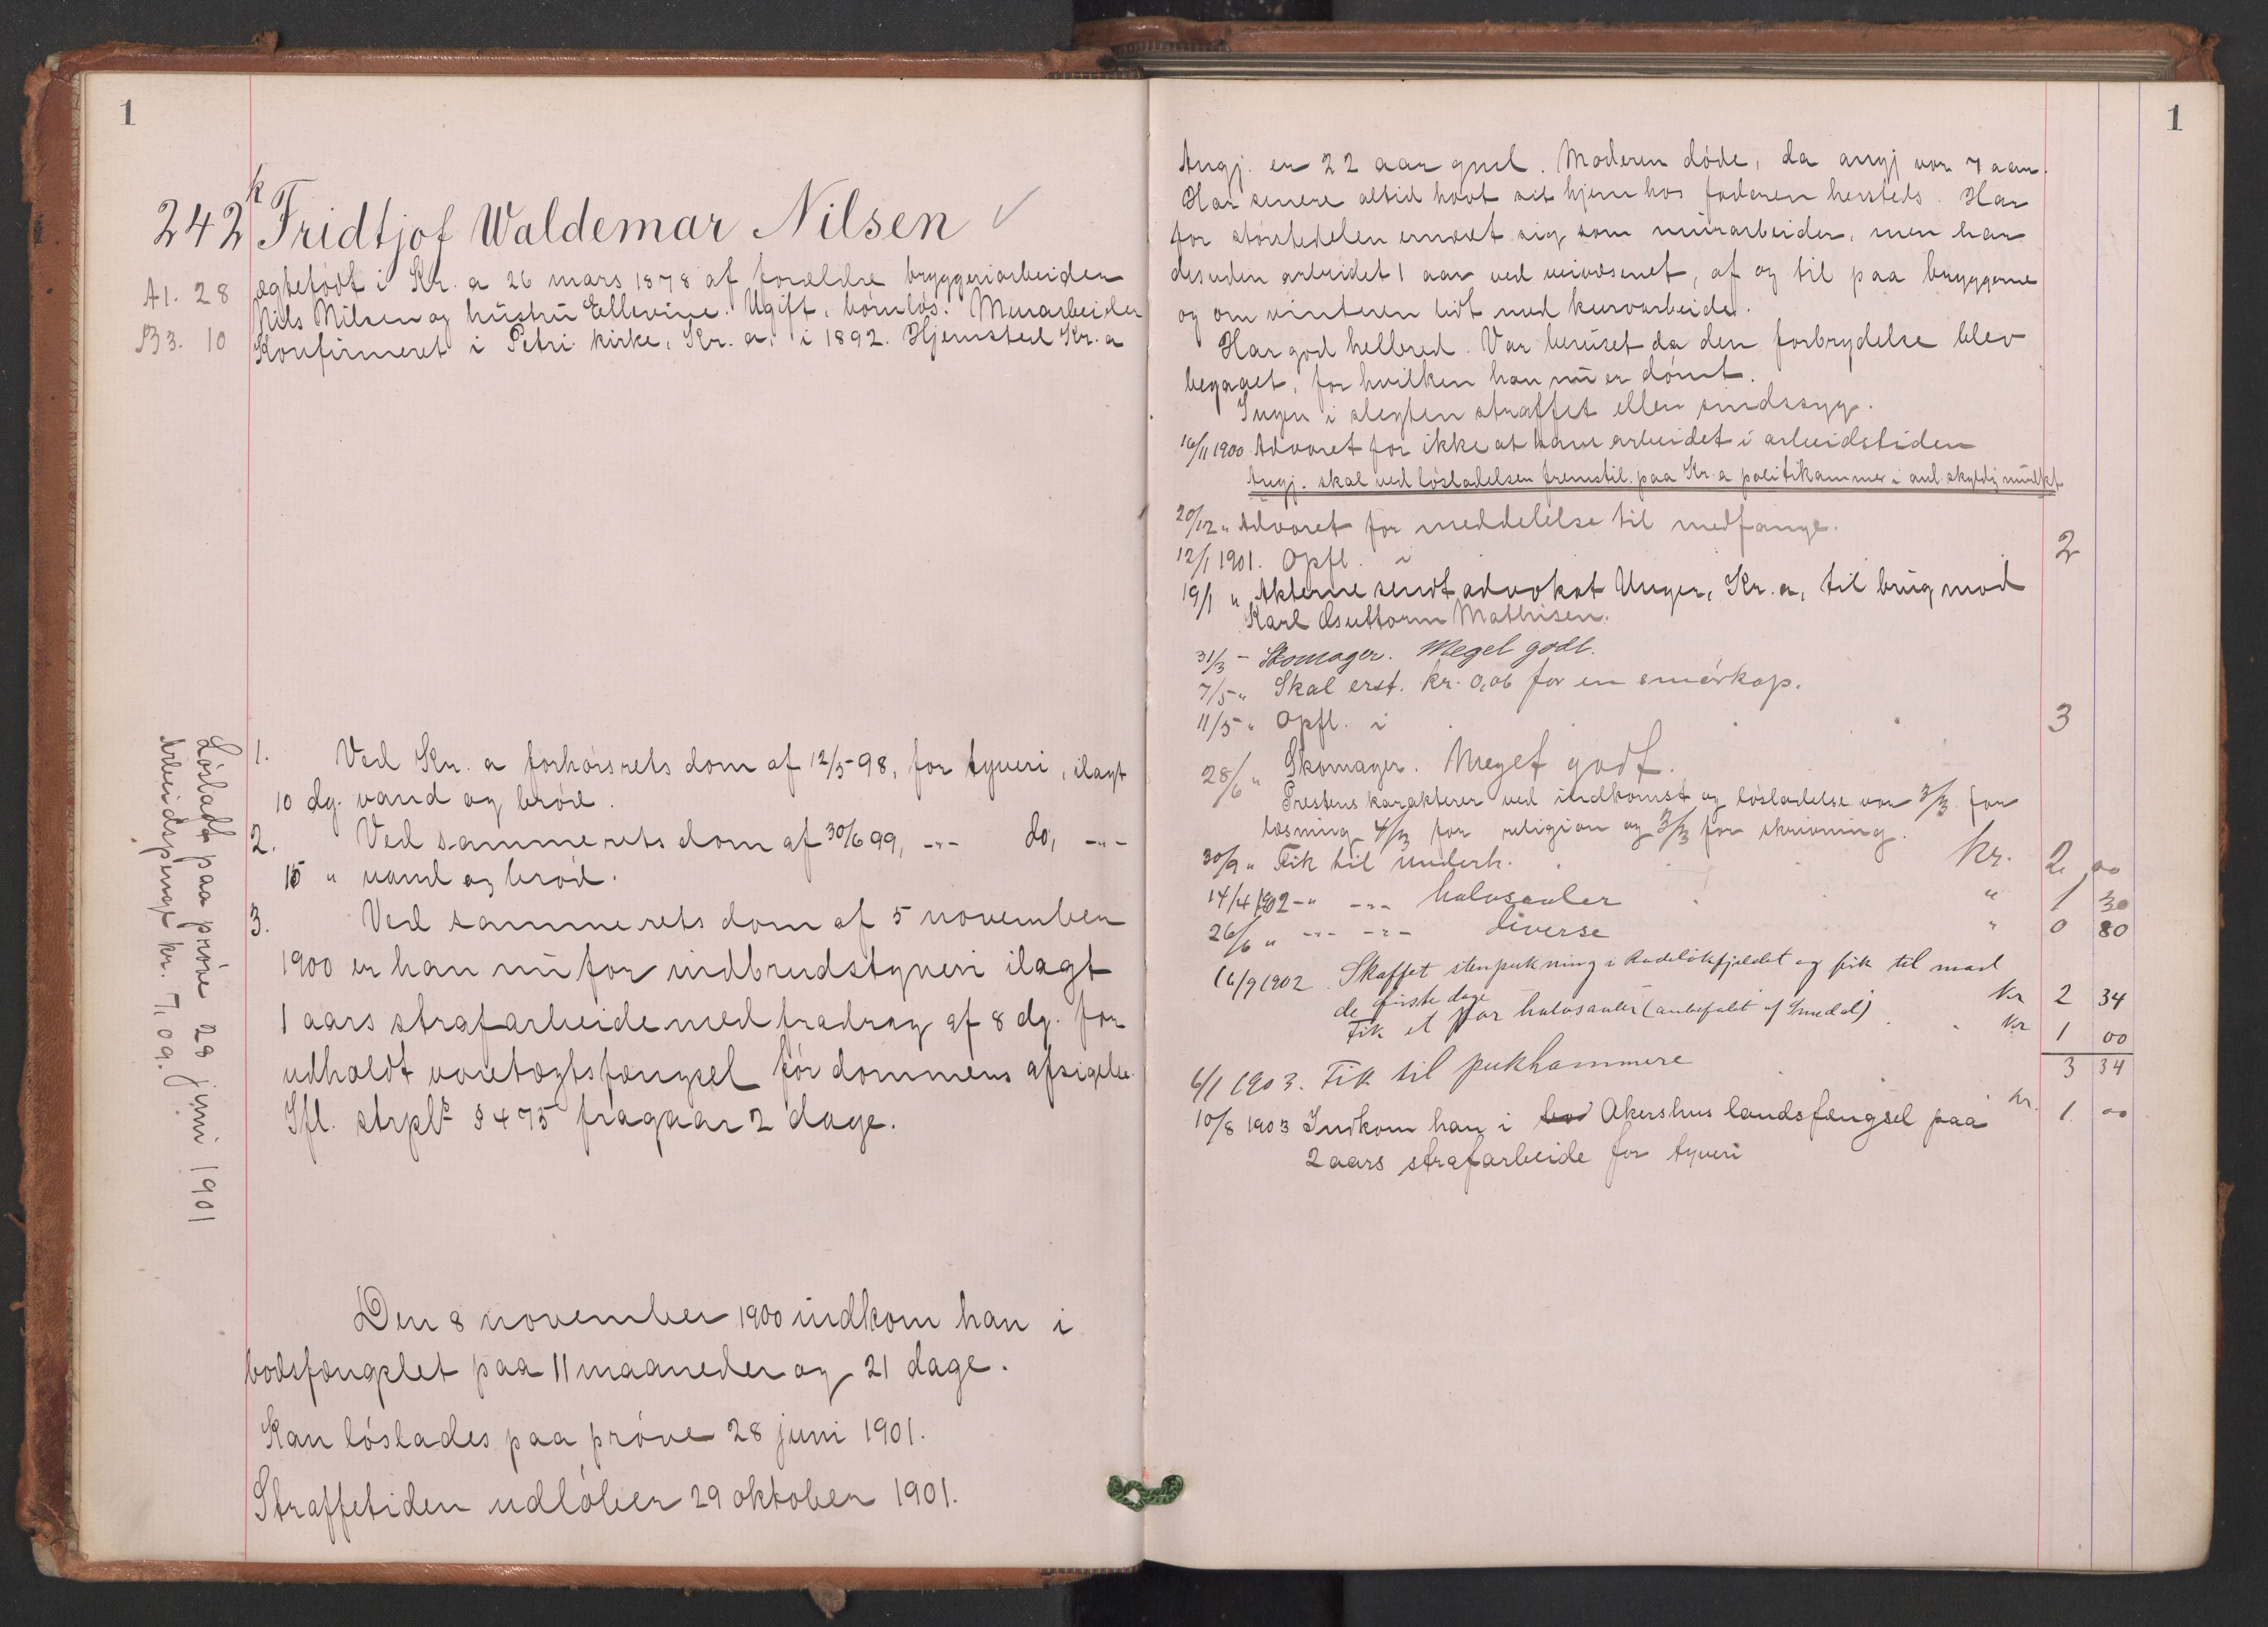 1
242 k Fridtjof Waldemar Nilsen ✓
A1. 28
B3. 10
ægtefødt i Kr.a 26 mars 1878 af forældre bryggeriarbeider
Nils Nilsen og hustru Ellevine. Ugift, børnløs. Murarbeider
Konfirmeret i Petri kirke, Kr.a. i 1892. Hjemsted Kr.a
1. Ved Kr.a forhørsrets dom af 12/5-98, for tyveri, ilagt
10 dg. vand og brød.
2. Ved samme rets dom af 30/6 99, -"- do, -"-
15 " vand og brød.
3. Ved samme rets dom af 5 november
1900 er han nu for indbrudstyveri ilagt
1 aars strafarbeide med fradrag af 8 dg. for
udholdt varetægtsfængsel før dommens afsigelse.
Ifl. strpl. § 475 fragaar 2 dage.
Løsladt paa prøve 28 juni 1901
Arbeidspenge kr. 7,09.
Den 8 november 1900 indkom han i
bodsfængslet paa 11 maaneder og 21 dage.
Kan løslades paa prøve 28 juni 1901.
Straffetiden udløber 29 oktober 1901.
1
Angj. er 22 aar gml. Moderen døde, da angj var 7 aar.
Har senere altid havt sit hjem hos faderen hersteds. Har
for størstedelen ernæret sig som murarbeider, men har
desuden arbeidet 1 aar ved veivæsenet, af og til paa bryggerne
og om vinteren lidt med kurvarbeide.
Har god helbred. Var beruset da den forbrydelse blev
begaaet, for hvilken han nu er dømt.
Ingen i slegten straffet eller sindssyg.
16/11 1900 Advaret for ikke at have arbeidet i arbeidstiden
Angj. skal ved løsladelsen fremstil. paa Kr.a politikammer i anl. skyldig mulkt
20/12 " Advaret for meddelelse til medfange.
12/1 1901. Opfl. i 2
19/1 " Akterne sendt advokat Unger, Kr.a, til brug mod
Karl Guttorm Mathisen.
31/3 - Skomager. Meget godt.
7/5 " Skal erst. kr. 0,06 for en smørkop.
11/5 " Opfl. i 3
28/6 " Skomager. Meget godt.
Prestens karakterer ved indkomst og løsladelse var 3/3 for
læsning 4/3 for religion og 3/3 for skrivning.
30/9 " Fik til underh. kr. 2,00
14/4 1902 -"- -"- halvsaaler " 1 30
26/6 " -"- -"- diverse " 0 80
16/9 1902. Skaffet stenpukning i Rodeløkfjeldet og fik til mad
de første dage Kr 2 34
Fik et par halvsaaler (anbefalet af Smedal) Kr 1 00
3 34
6/1 1903. Fik til pukhammere Kr. 1. 00
10/8 1903 Indkom han i Akershus landsfængsel paa
2 aars strafarbeide for tyveri